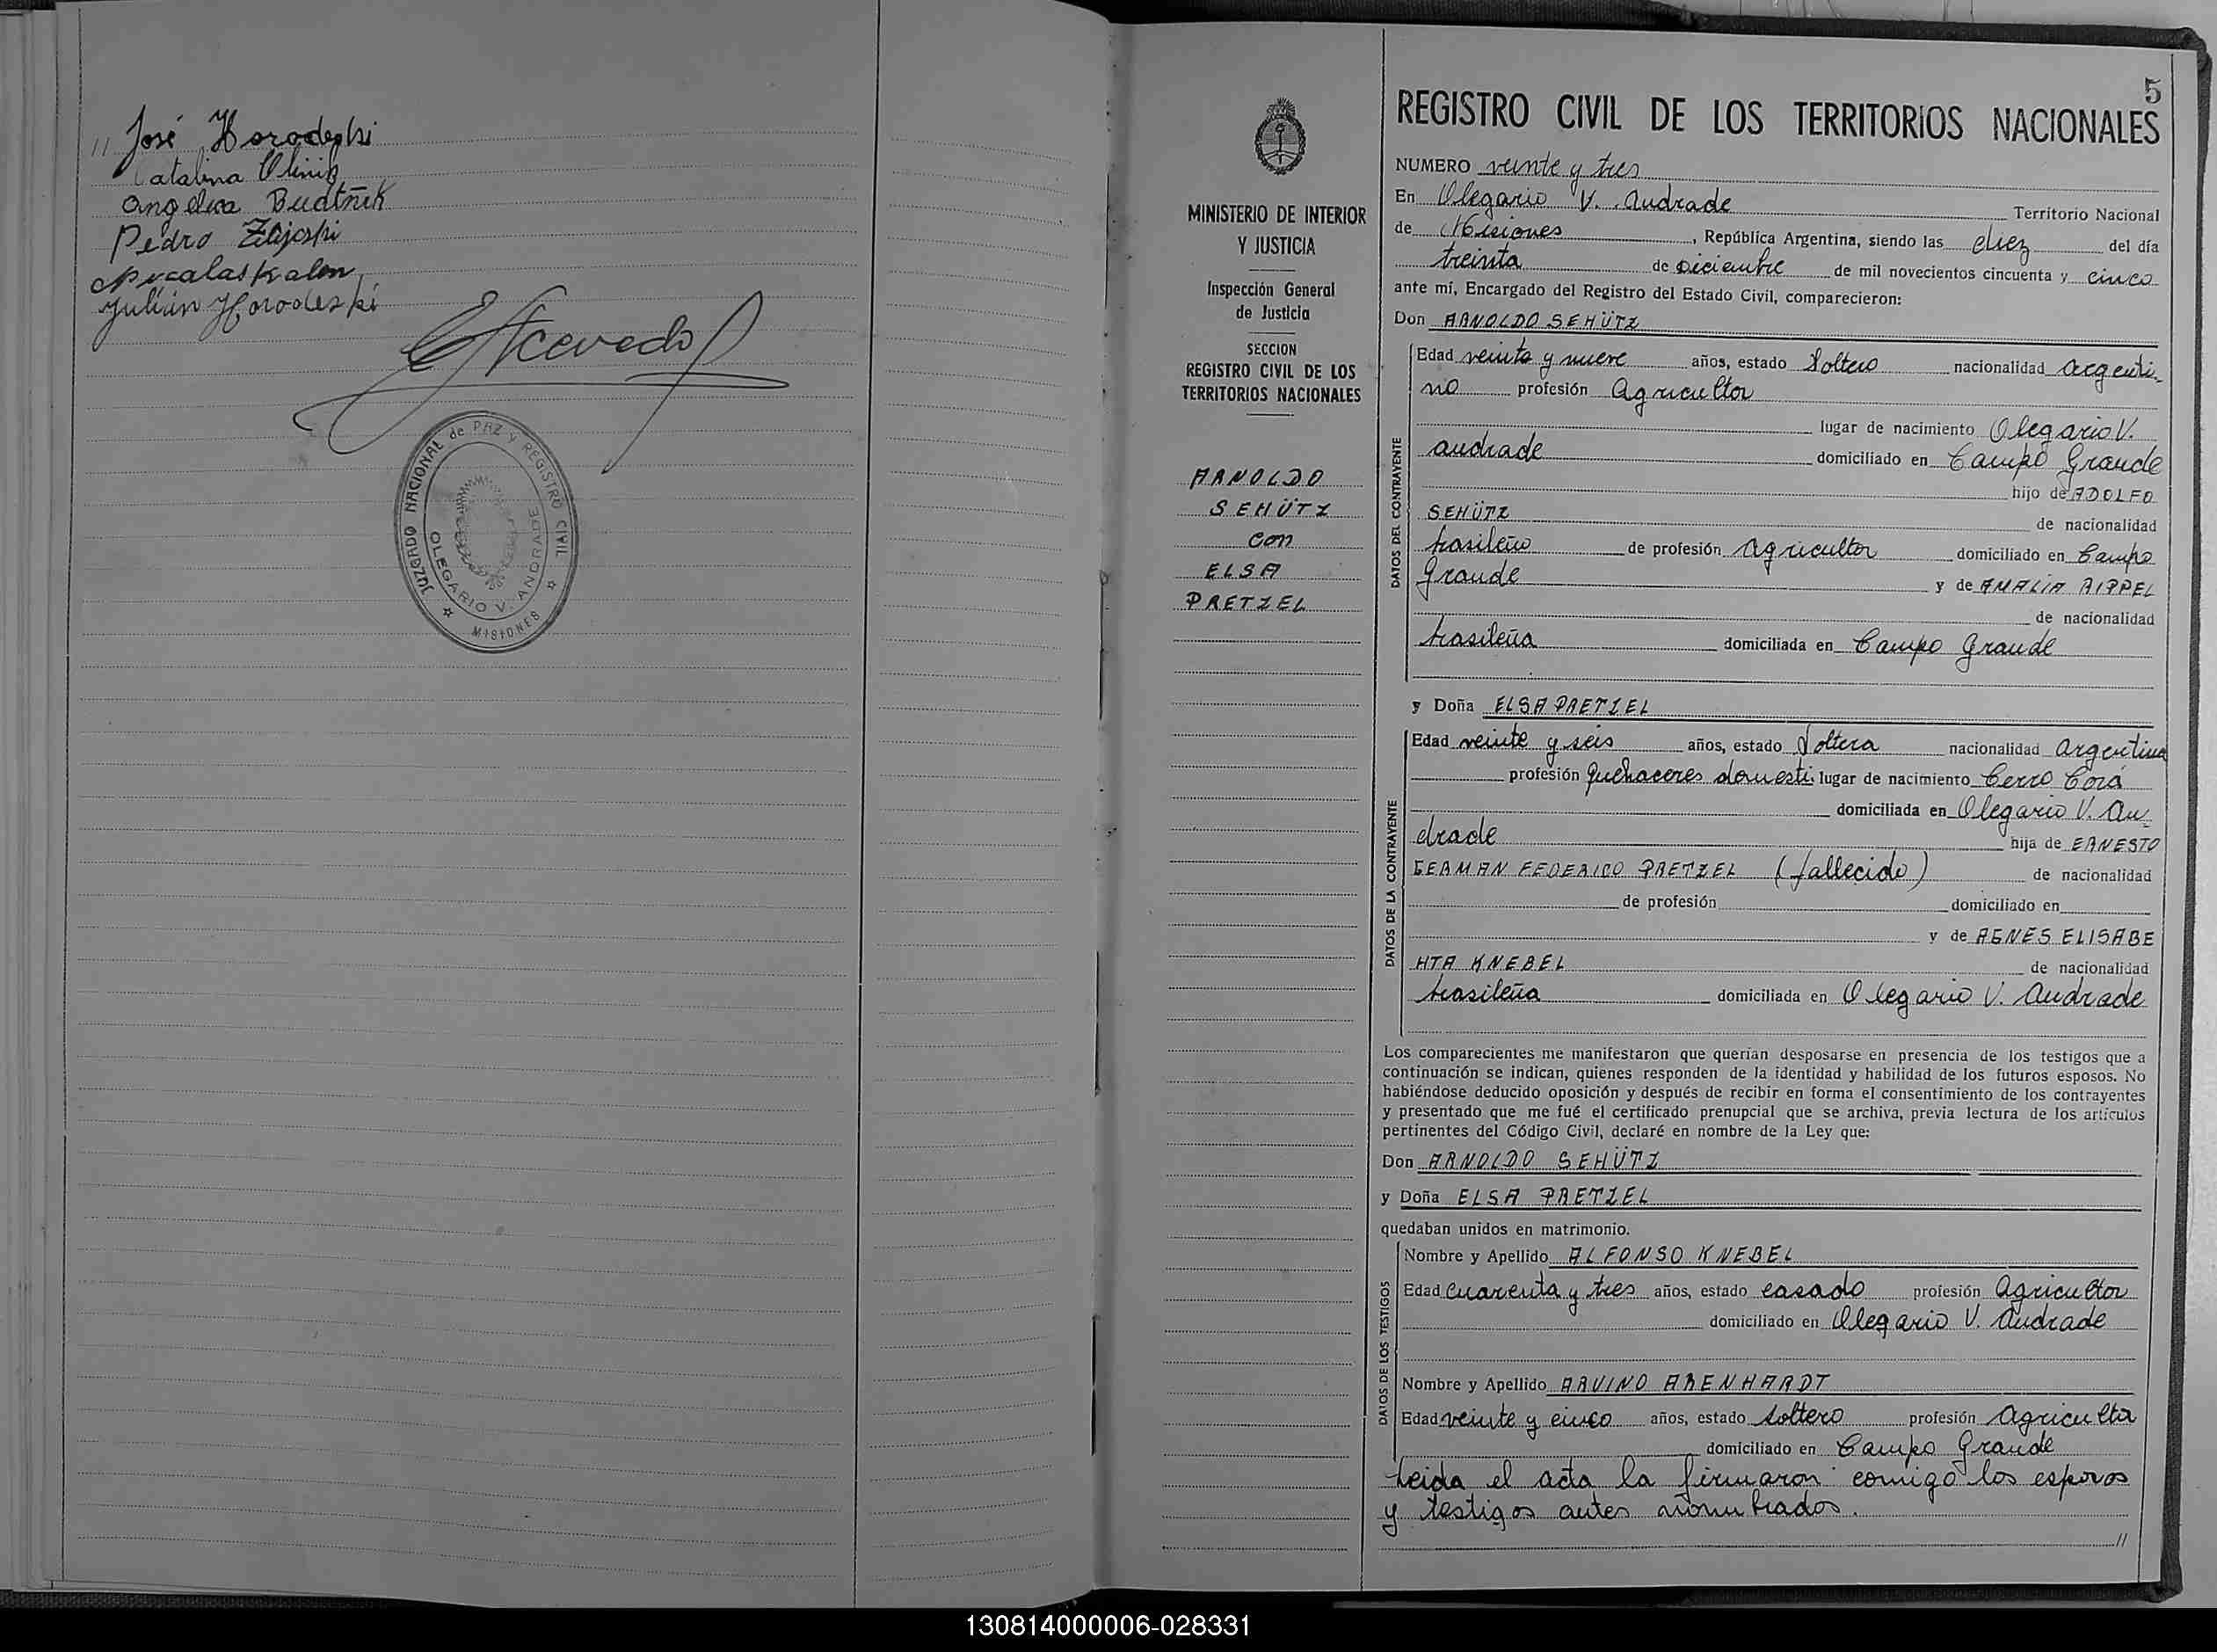 // José Horodeski
Catalina Olinik
Angelica Budtñik
Pedro
Julián Horodeski
EAcevedo
JUZGADO NACIONAL de PAZ y REGISTRO CIVIL
OLEGARIO V. ANDRADE
MISIONES
MINISTERIO DE INTERIOR
Y JUSTICIA
Inspección General
de Justicia
SECCION
REGISTRO CIVIL DE LOS
TERRITORIOS NACIONALES
ARNOLDO
SEHÜTZ
con
ELSA
PRETZEL
5
REGISTRO CIVIL DE LOS TERRITORIOS NACIONALES
NUMERO veinte y tres
En Olegario V. Andrade Territorio Nacional
de Misiones, República Argentina, siendo las diez del día
treinta de Diciembre de mil novecientos cincuenta y cinco
ante mí, Encargado del Registro del Estado Civil, comparecieron:
Don ARNOLDO SEHÜTZ
DATOS DEL CONTRAYENTE
Edad veinte y nueve años, estado Soltero nacionalidad argenti-
no profesión Agricultor
lugar de nacimiento Olegario V.
Andrade domiciliado en Campo Grande
hijo de ADOLFO
SEHÜTZ de nacionalidad
brasileño de profesión Agricultor domiciliado en Campo
Grande y de AMALIA RIPPEL
de nacionalidad
brasileña domiciliada en Campo Grande
y Doña ELSA PRETZEL
DATOS DE LA CONTRAYENTE
Edad veinte y seis años, estado Soltera nacionalidad argentina
profesión quehaceres domesti. lugar de nacimiento Cerro Corá
domiciliada en Olegario V. An
drade hija de ERNESTO
GERMAN FEDERICO PRETZEL (fallecido) de nacionalidad
de profesión domiciliado en
y de AGNES ELISABE
HTA KNEBEL de nacionalidad
brasileña domiciliada en Olegario V. Andrade
Los comparecientes me manifestaron que querían desposarse en presencia de los testigos que a
continuación se indican, quienes responden de la identidad y habilidad de los futuros esposos. No
habiéndose deducido oposición y después de recibir en forma el consentimiento de los contrayentes
y presentado que me fué el certificado prenupcial que se archiva, previa lectura de los artículos
pertinentes del Código Civil, declaré en nombre de la Ley que:
Don ARNOLDO SEHÜTZ
y Doña ELSA PRETZEL
quedaban unidos en matrimonio.
DATOS DE LOS TESTIGOS
Nombre y Apellido ALFONSO KNEBEL
Edad cuarenta y tres años, estado casado profesión Agricultor
domiciliado en Olegario V. Andrade
Nombre y Apellido ARVINO ARENHARDT
Edad veinte y cinco años, estado soltero profesión Agricultor
domiciliado en Campo Grande
Leida el acta la firmaron comigo los esposos
y testigos antes nombrados.
//
130814000006-028331